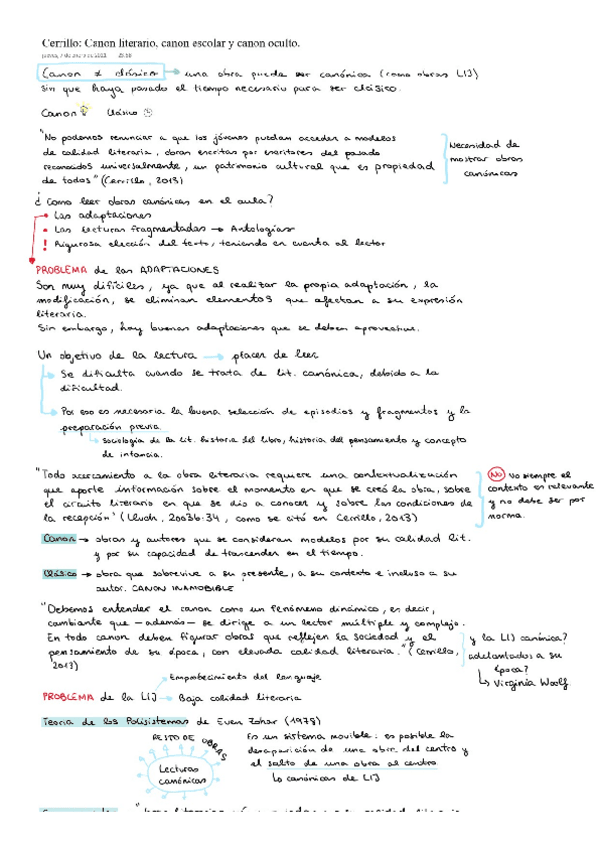 Cerrillo: Canon literario, canon escolar y canon oculto.
Canon ≠ clásico → una obra puede ser canónica (como obras LIJ)
sin que haya pasado el tiempo necesario para ser clásico.
Canon Clásico
"No podemos renunciar a que los jóvenes puedan acceder a modelos
de calidad literaria, obras escritas por escritores del pasado
reconocidos universalmente, un patrimonio cultural que es propiedad
de todos" (Cerrillo, 2013)
Necesidad de
mostrar obras
canónicas
¿Como leer obras canónicas en el aula?
• Las adaptaciones
• Las lecturas fragmentadas → Antologías
! Rigurosa elección del texto, teniendo en cuenta al lector
PROBLEMA de las ADAPTACIONES
Son muy difíciles, ya que al realizar la propia adaptación, la
modificación, se eliminan elementos que afectan a su expresión
literaria.
Sin embargo, hay buenas adaptaciones que se deben aprovechar.
Un objetivo de la lectura → placer de leer
Se dificulta cuando se trata de lit. canónica, debido a la
dificultad.
Por eso es necesaria la buena selección de episodios y fragmentos y la
preparación previa.
sociología de la lit. historia del libro, historia del pensamiento y concepto
de infancia.
"Todo acercamiento a la obra literaria requiere una contextualización
que aporte información sobre el momento en que se creó la obra, sobre
el circuito literario en que se dio a conocer y sobre las condiciones de
la recepción" (Lluch, 2003b:34, como se citó en Cerrillo, 2013)
No No siempre el
contexto es relevante
y no debe ser por
norma.
Canon → obras y autores que se consideran modelos por su calidad lit.
y por su capacidad de trascender en el tiempo.
Clásico → obra que sobrevive a su presente, a su contexto e incluso a su
autor. CANON INAMOBIBLE
"Debemos entender el canon como un fenómeno dinámico, es decir,
cambiante que —además— se dirige a un lector múltiple y complejo.
En todo canon deben figurar obras que reflejen la sociedad y el
pensamiento de su época, con elevada calidad literaria." (Cerrillo,
2013)
y la LIJ canónica?
adelantados a su
época?
↳ Virginia Woolf
Empobrecimiento del lenguaje
PROBLEMA de la LIJ → Baja calidad literaria
Teoría de los Polisistemas de Even Zohar (1978)
RESTO DE OBRAS
Lecturas
canónicas
Es un sistema movible: es posible la
desaparición de una obra del centro y
el salto de una obra al centro
↳ canónicas de LIJ